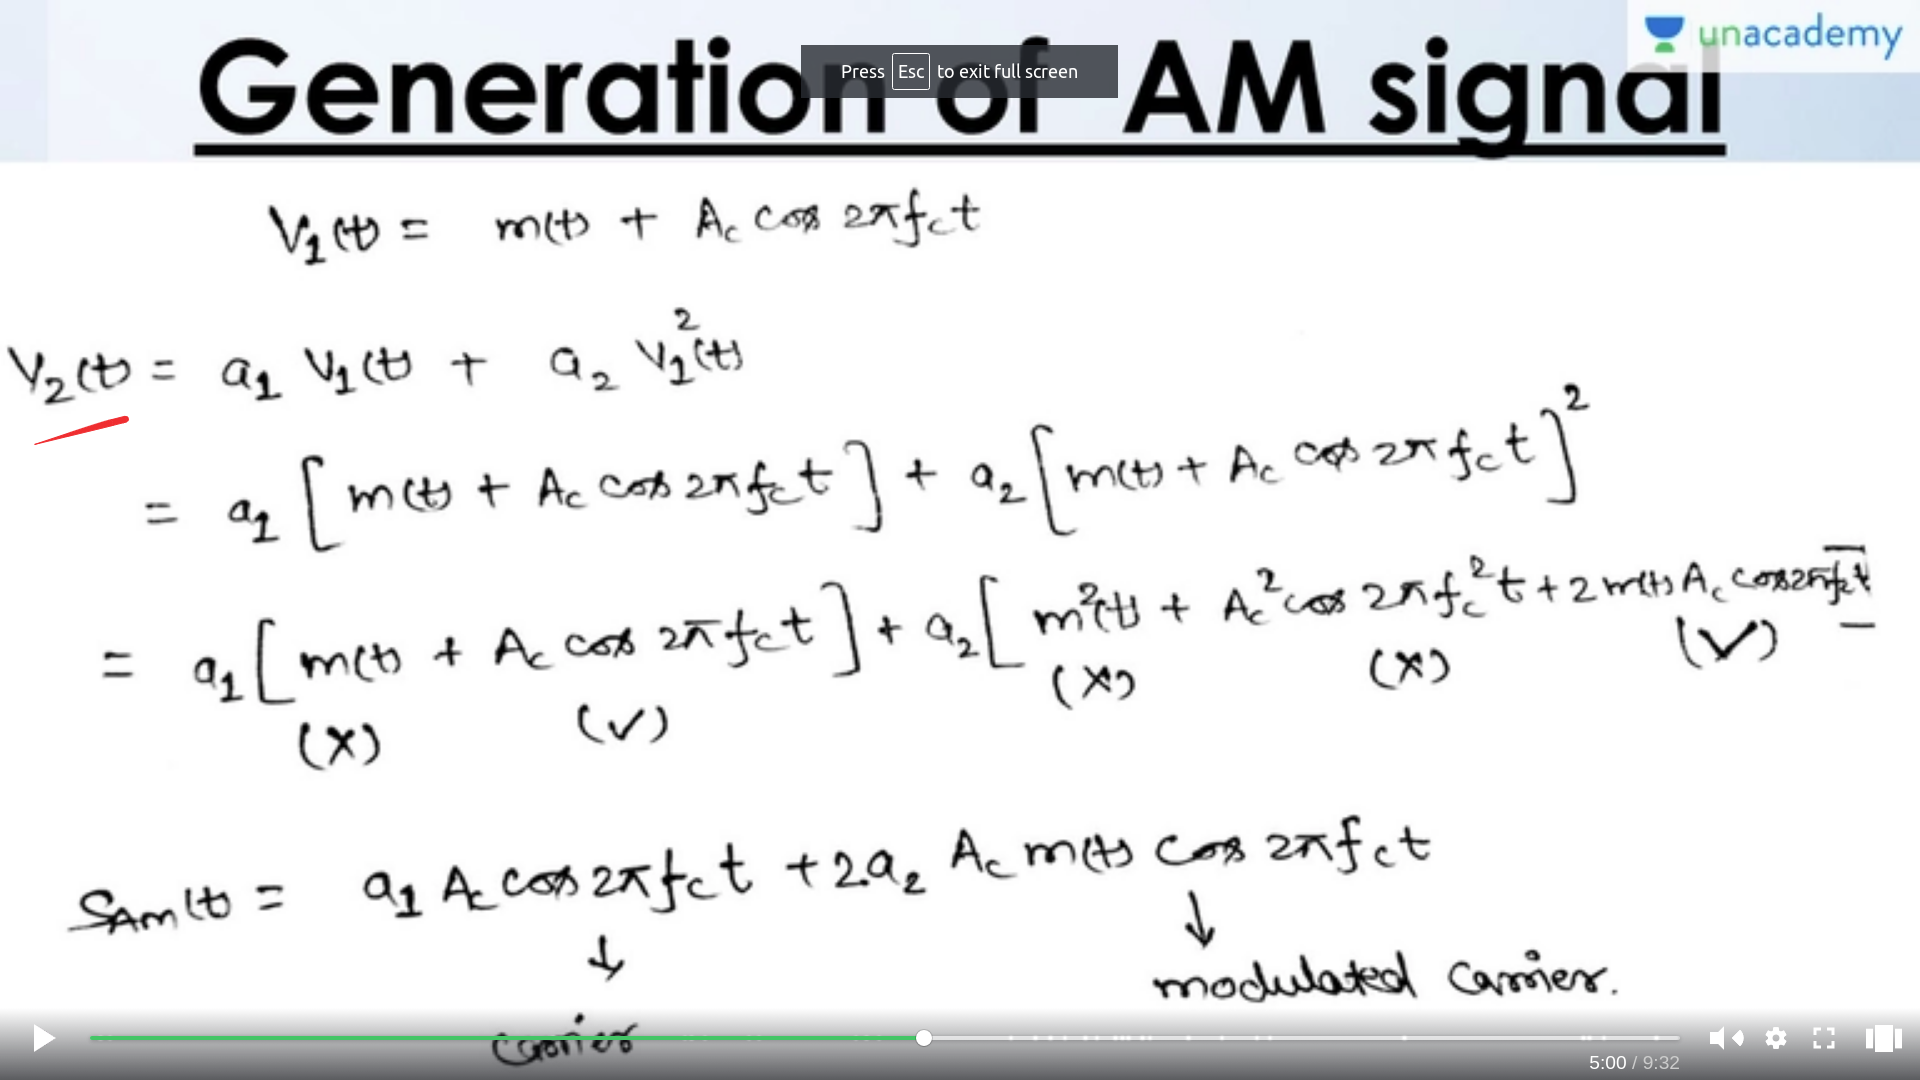 unacademy
Generation of AM signal
Press Esc to exit full screen
V₁(t) = m(t) + A_c cos 2πf_c t
V₂(t) = a₁ V₁(t) + a₂ V₁²(t)
= a₁ [m(t) + A_c cos 2πf_c t] + a₂ [m(t) + A_c cos 2πf_c t]²
= a₁ [m(t) + A_c cos 2πf_c t] + a₂ [m²(t) + A_c² cos 2πf_c² t + 2 m(t) A_c cos 2πf_c t]
(x) (✓) (x) (x) (✓)
S_AM(t) = a₁ A_c cos 2πf_c t + 2.a₂ A_c m(t) cos 2πf_c t
↓ ↓
carrier modulated carrier.
5:00 / 9:32